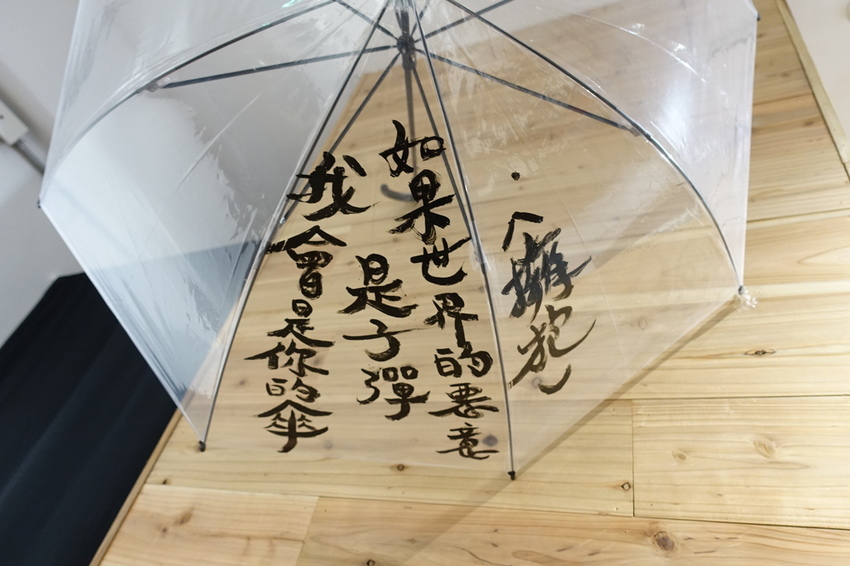 擁抱
如果世界的惡意
是子彈
我會是你的傘